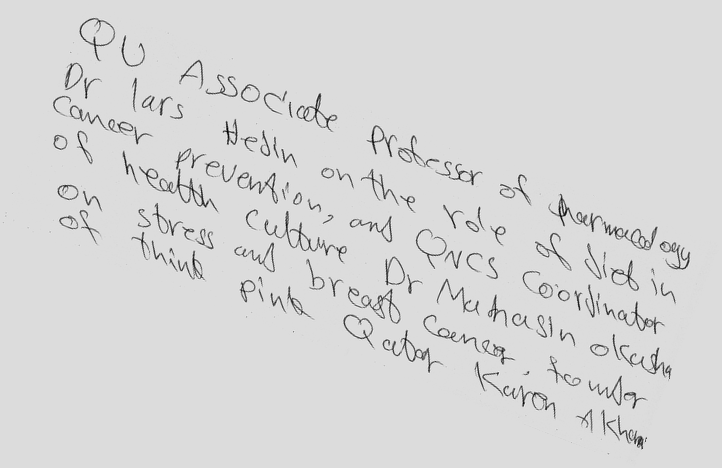 QU Associate Professor of pharmacology
Dr lars Hedin on the role of diet in
cancer prevention, and QNCS Coordinator
of health culture Dr Mathasin okasha
on stress and breast cancer, founder
of think pink Qatar Karen Alkhan